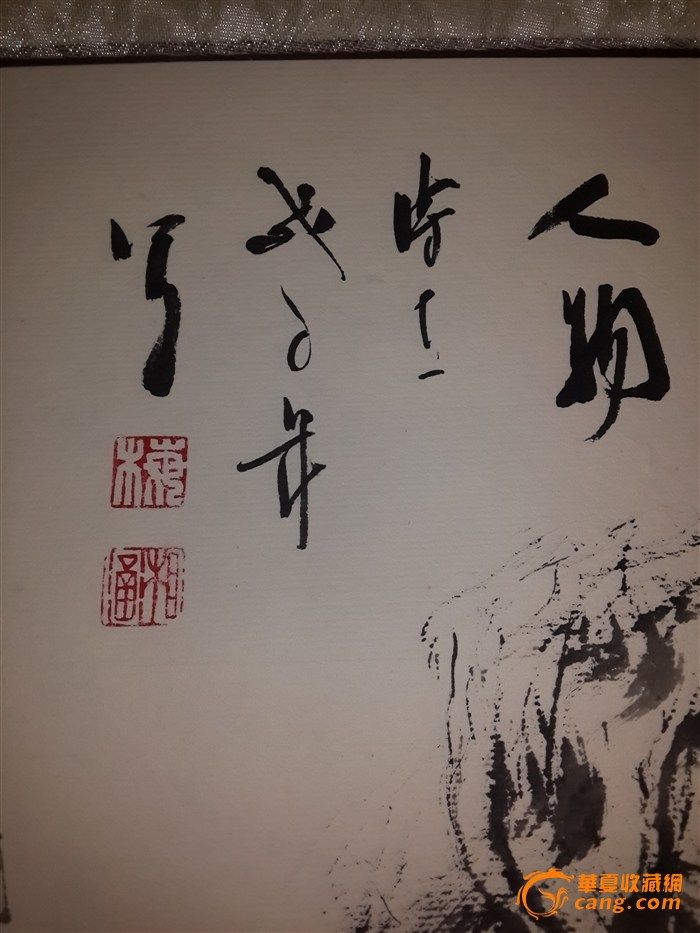 人物
時在
戊子年
写
梅
華夏收藏網
cang.com